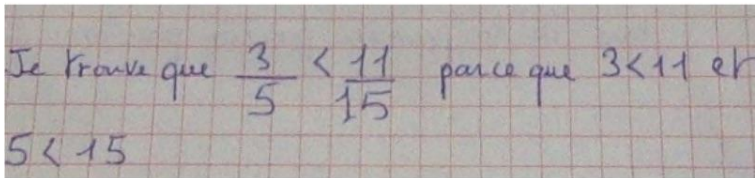 Je trouve que 3/5 < 11/15 parce que 3<11 et
5<15